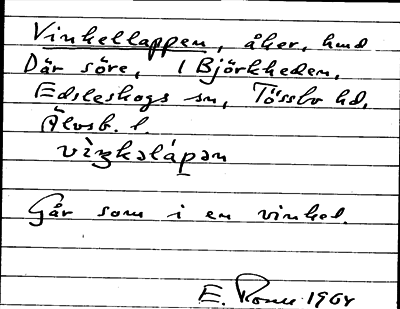 Vinkellappen, åker, hmd
Där söre, 1 Björkheden,
Edsleskogs sn, Tössbo hd,
Älvsb. l.
vìŋkəlápən
Går som i en vinkel.
E. 1964